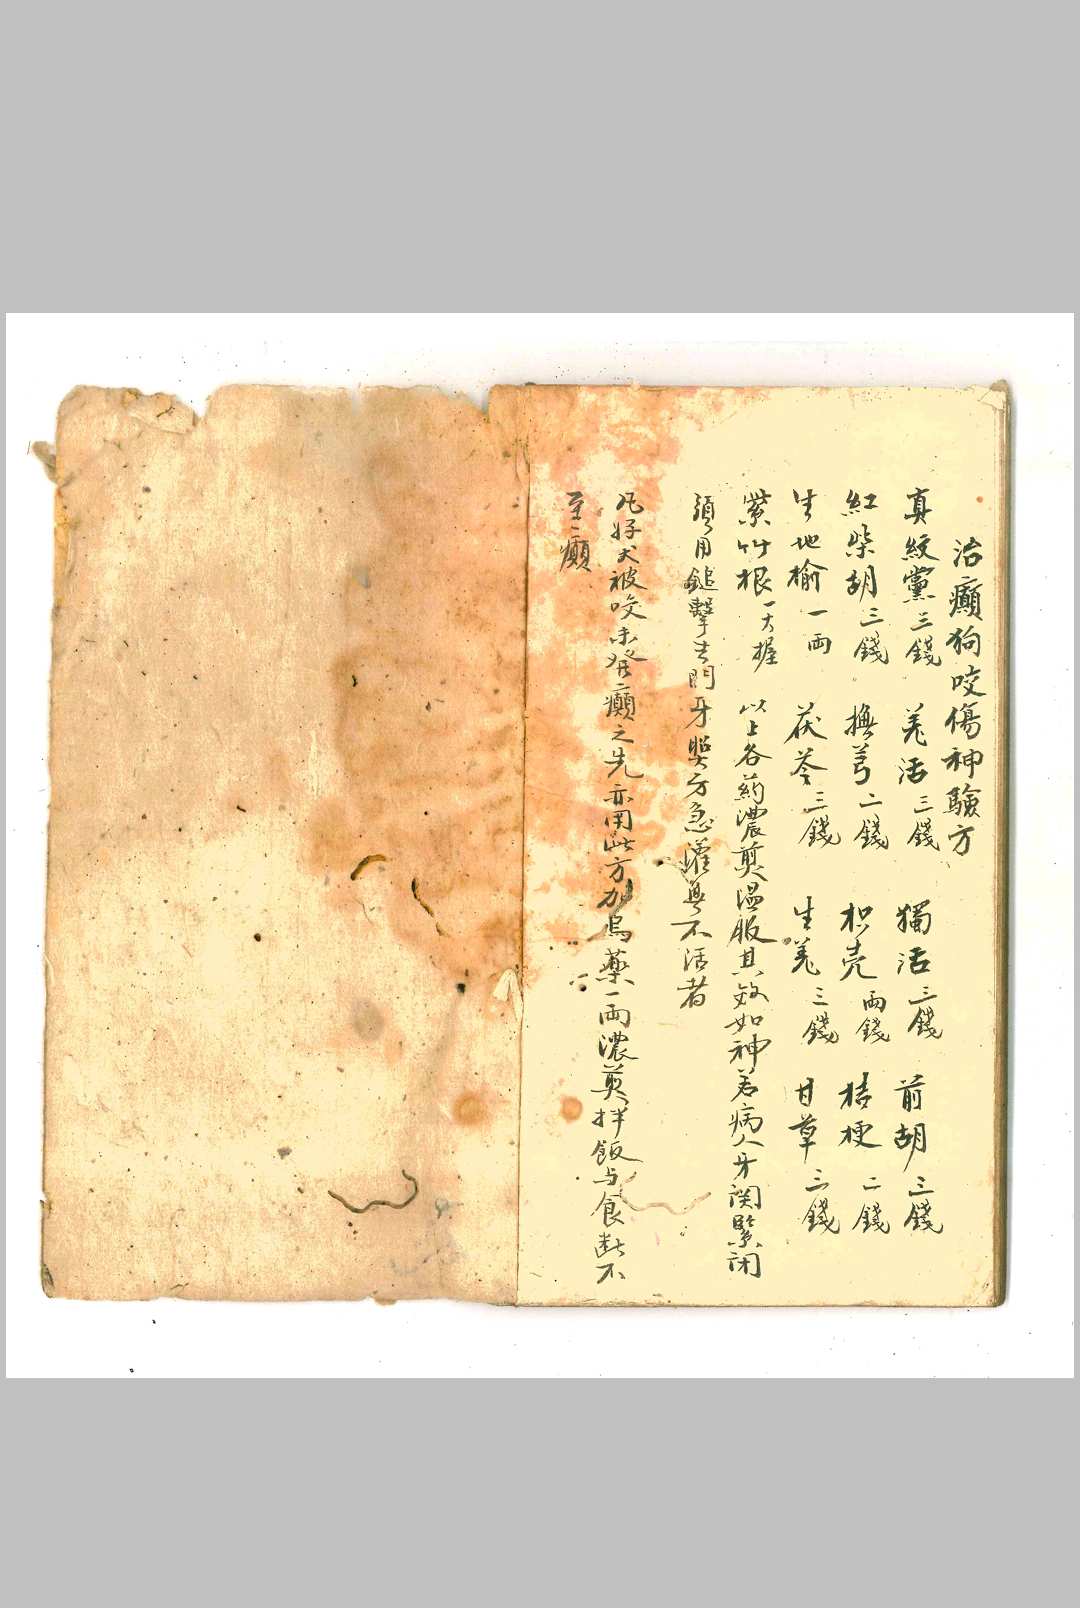 治癲狗咬傷神驗方
真紋黨三錢 羌活三錢 獨活三錢 前胡三錢
紅柴胡三錢 撫芎二錢 枳壳兩錢 桔梗二錢
生地榆一兩 茯苓三錢 生羌三錢 甘草三錢
紫竹根一大握 以上各葯濃煎温服其效如神若病人牙関緊閉
須用鎚擊去門牙照方急灌無不活者
凡好犬被咬未發癲之先亦用此方加烏藥一兩濃煎拌飯与食断不
至癲